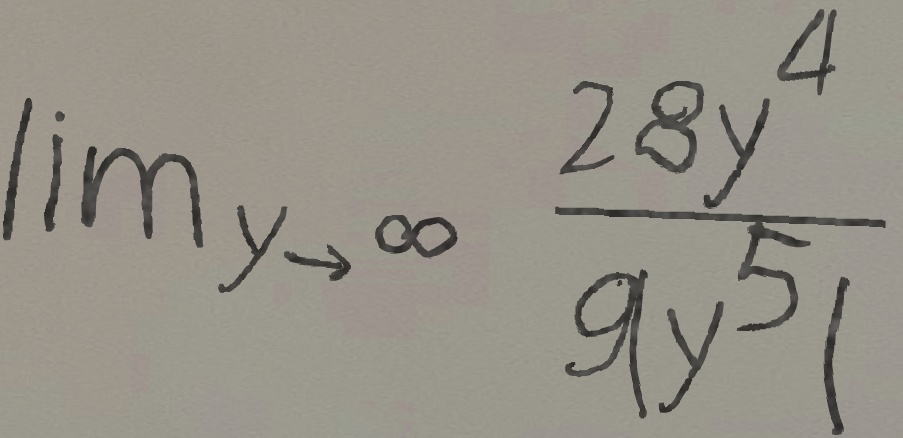 lim y→∞ 28y⁴/9y⁵1